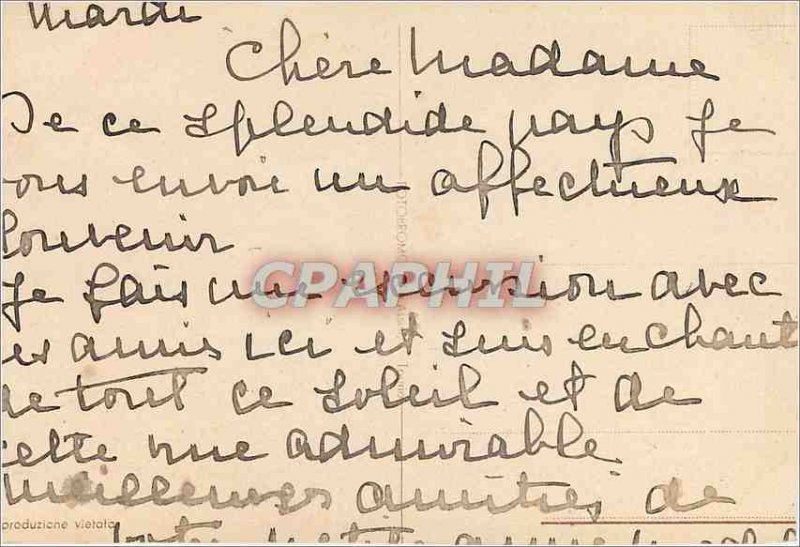 Mardi
Chère Madame
De ce splendide pays je
vous envoi un affectueux
Souvenir
Je fais une excursion avec
es amis ici et suis enchant
de tout ce soleil et de
cette vue admirable.
Meilleures amitiés de
CPARPHIL
produzione vietata